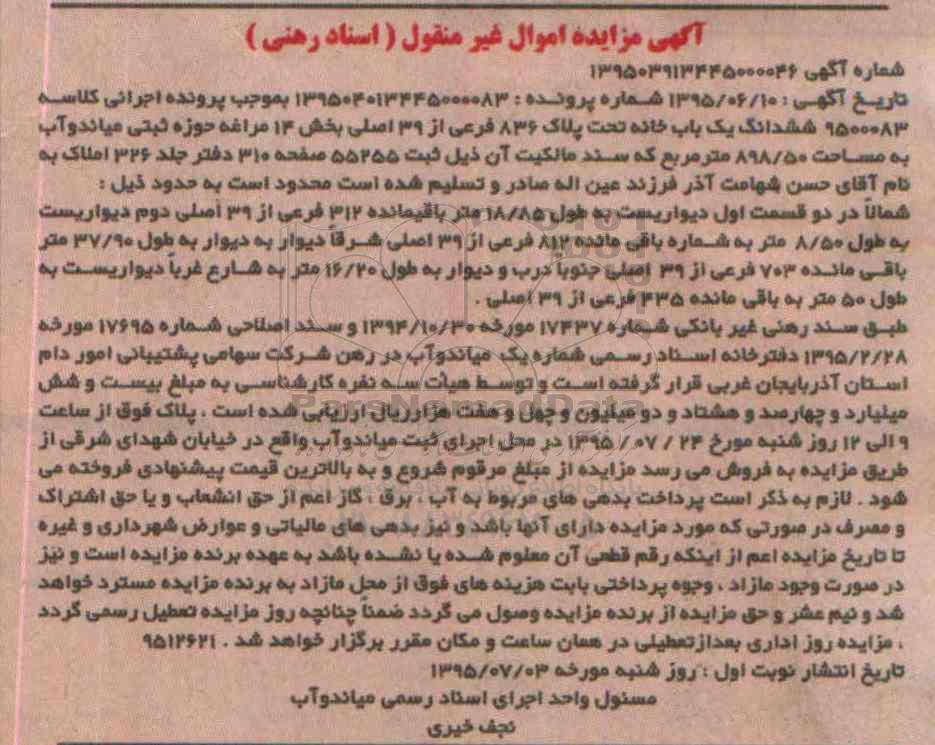 آگهی مزایده اموال غیر منقول ( اسناد رهنی )
شماره آگهی ۱۳۹۵۰۳۹۱۳۴۴۵۰۰۰۰۴۶
تاریخ آگهی : ۱۳۹۵/۰۶/۱۰ شماره پرونده : ۱۳۹۵۰۴۰۱۳۴۴۵۰۰۰۰۸۳ بموجب پرونده اجرائی کلاسه
۹۵۰۰۰۸۳ ششدانگ یک باب خانه تحت پلاک ۸۳۶ فرعی از ۳۹ اصلی بخش ۱۴ مراغه حوزه ثبتی میاندوآب
به مساحت ۸۹۸/۵۰ مترمربع که سند مالکیت آن ذیل ثبت ۵۵۲۵۵ صفحه ۳۱۰ دفتر جلد ۳۲۶ املاک به
نام آقای حسن شهامت آذر فرزند عین اله صادر و تسلیم شده است محدود است به حدود ذیل :
شمالاً در دو قسمت اول دیواریست به طول ۱۸/۸۵ متر باقیمانده ۳۱۲ فرعی از ۳۹ اصلی دوم دیواریست
به طول ۸/۵۰ متر به شماره باقی مانده ۸۱۲ فرعی از ۳۹ اصلی شرقاً دیوار به دیوار به طول ۳۷/۹۰ متر
باقی مانده ۷۰۳ فرعی از ۳۹ اصلی جنوباً درب و دیوار به طول ۱۶/۲۰ متر به شارع غرباً دیواریست به
طول ۵۰ متر به باقی مانده ۴۳۵ فرعی از ۳۹ اصلی .
طبق سند رهنی غیر بانکی شماره ۱۷۴۳۷ مورخه ۱۳۹۴/۱۰/۳۰ و سند اصلاحی شماره ۱۷۶۹۵ مورخه
۱۳۹۵/۲/۲۸ دفترخانه اسناد رسمی شماره یک میاندوآب در رهن شرکت سهامی پشتیبانی امور دام
استان آذربایجان غربی قرار گرفته است و توسط هیأت سه نفره کارشناسی به مبلغ بیست و شش
میلیارد و چهارصد و هشتاد و دو میلیون و چهل و هفت هزار ریال ارزیابی شده است ، پلاک فوق از ساعت
۹ الی ۱۲ روز شنبه مورخ ۲۴ / ۰۷ / ۱۳۹۵ در محل اجرای ثبت میاندوآب واقع در خیابان شهدای شرقی از
طریق مزایده به فروش می رسد مزایده از مبلغ مرقوم شروع و به بالاترین قیمت پیشنهادی فروخته می
شود . لازم به ذکر است پرداخت بدهی های مربوط به آب ، برق ، گاز اعم از حق انشعاب و یا حق اشتراک
و مصرف در صورتی که مورد مزایده دارای آنها باشد و نیز بدهی های مالیاتی و عوارض شهرداری و غیره
تا تاریخ مزایده اعم از اینکه رقم قطعی آن معلوم شده یا نشده باشد به عهده برنده مزایده است و نیز
در صورت وجود مازاد ، وجوه پرداختی بابت هزینه های فوق از محل مازاد به برنده مزایده مسترد خواهد
شد و نیم عشر و حق مزایده از برنده مزایده وصول می گردد ضمناً چنانچه روز مزایده تعطیل رسمی گردد
، مزایده روز اداری بعدازتعطیلی در همان ساعت و مکان مقرر برگزار خواهد شد . ۹۵۱۲۶۲۱
تاریخ انتشار نوبت اول : روز شنبه مورخه ۱۳۹۵/۰۷/۰۳
مسئول واحد اجرای اسناد رسمی میاندوآب
نجف خیری
ParsNamadData